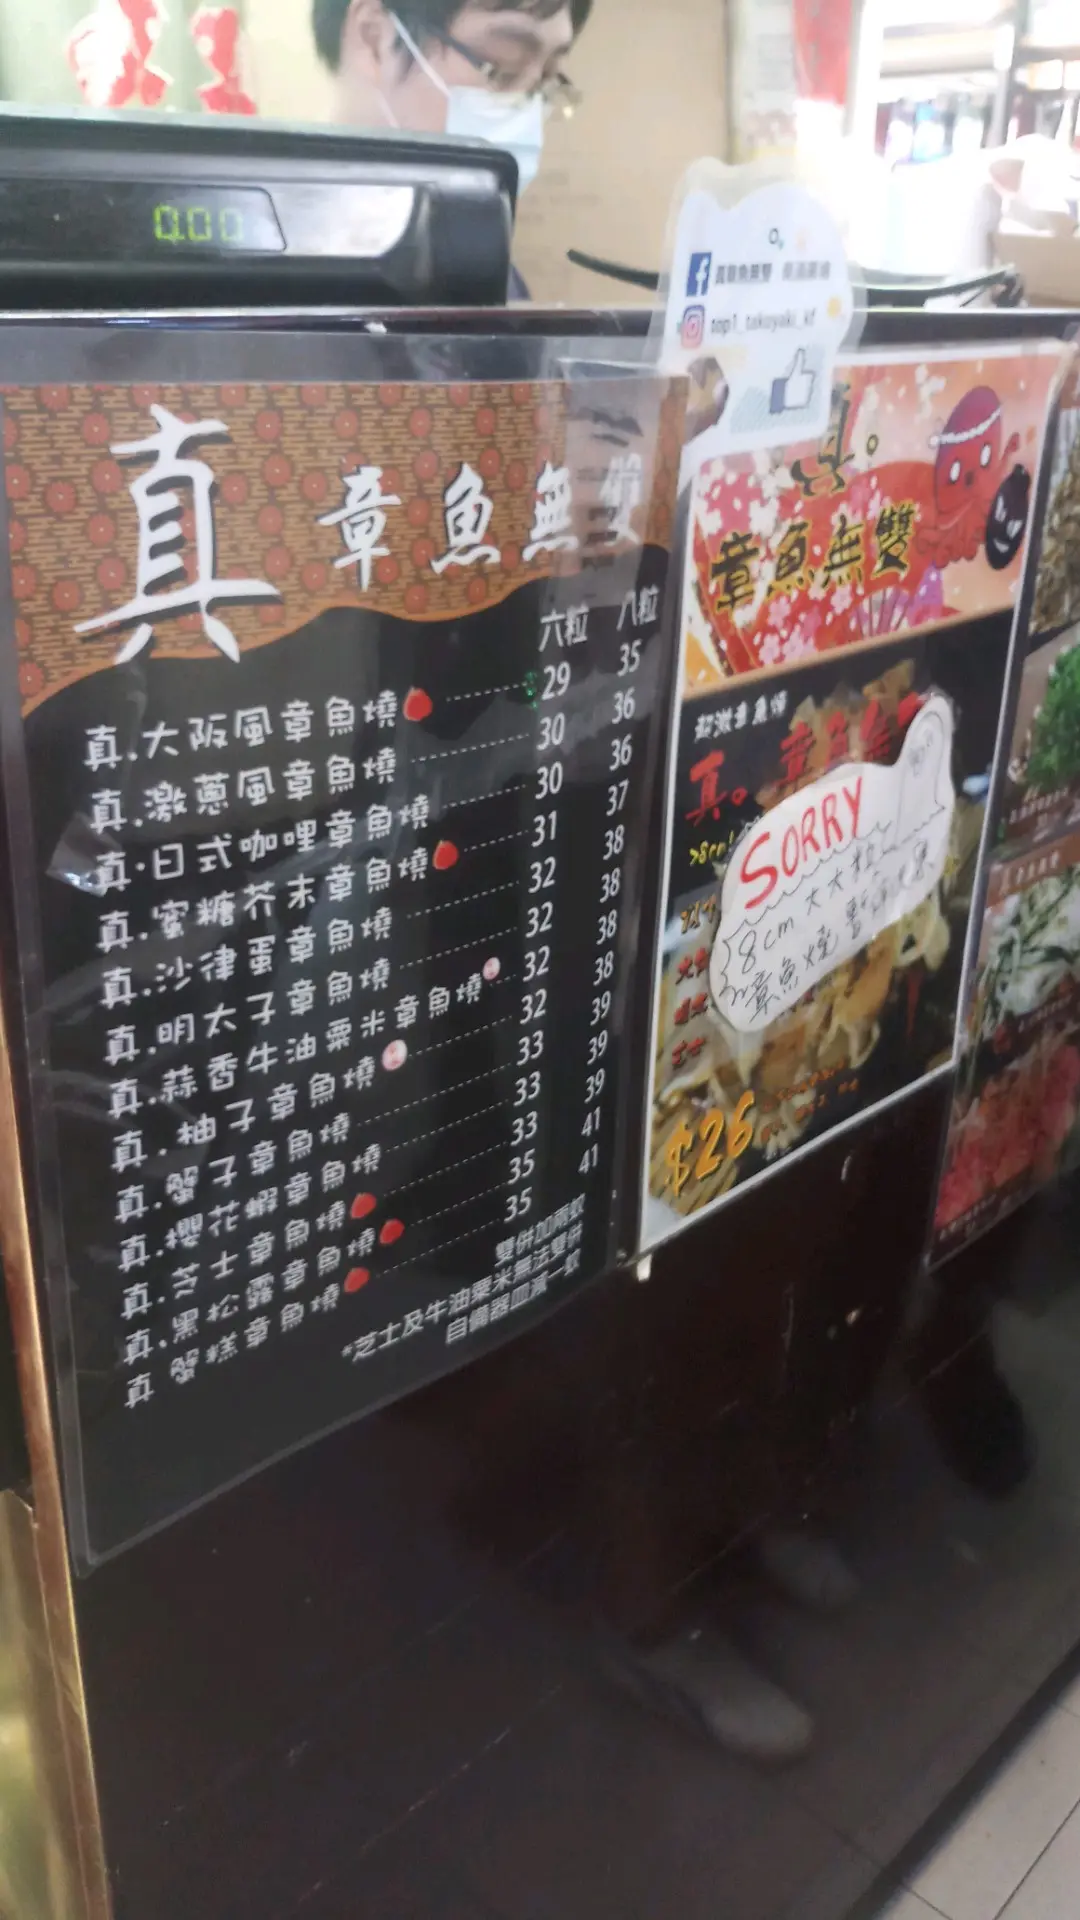 0.00
真章魚無雙
top1_takoyaki_kf
真 章魚無雙
六粒 八粒
真.大阪風章魚燒 29 35
真.激蔥風章魚燒 30 36
真.日式咖哩章魚燒 30 36
真.蜜糖芥末章魚燒 31 37
真.沙律蛋章魚燒 32 38
真.明太子章魚燒 32 38
真.蒜香牛油粟米章魚燒 32 38
真.柚子章魚燒 32 38
真.蟹子章魚燒 33 39
真.櫻花蝦章魚燒 33 39
真.芝士章魚燒 33 39
真.黑松露章魚燒 35 41
真 蟹糕章魚燒 35 41
雙併加兩蚊
*芝士及牛油粟米無法雙併
自備器皿減一蚊
真。
章魚無雙
真。章魚無
SORRY
8cm 大大粒
章魚燒暫停
$26